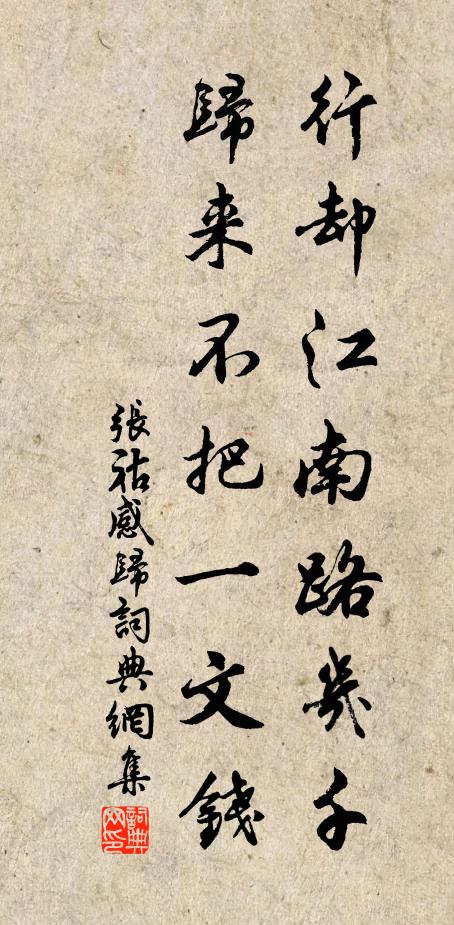 行却江南路幾千
歸来不把一文錢
張祜感歸詞典網集
詞典网印